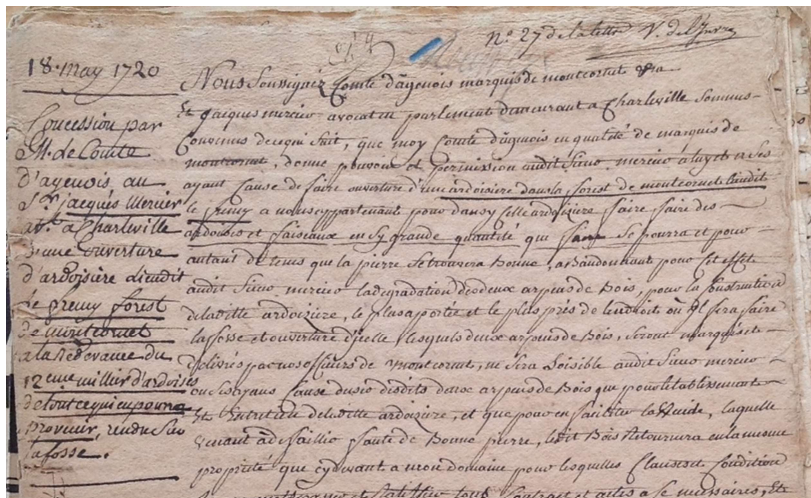 N.º 27 de la lettre V. de l'Inv.re
18. may 1720
Concession par
M. de Comte
d'agenois, au
S.r jacques Mercier
av.t a Charleville
d'une ouverture
d'ardoisiere lieudit
le gremy forest
de montcornet
a la Redevance du
12eme millier d'ardoises
de tout ce qui en pourra
provenir, rendu sur
la fosse.
Nous Soussignez Comte d'agenois marquis de montcornet
Et Jacques mercier avocat en parlement demeurant a Charleville Sommes
Convenus de ce qui suit, que moy Comte d'agenois en qualité de marquis de
montcornet, donne pouvoir et permission audit Sieur mercier a luy et a Ses
ayant cause de faire ouverture d'une ardoisiere dans la forest de montcornet lieudit
le gremy a nous appartenant pour dans icelle ardoisiere faire faire des
ardoises et faiseaux en Sy grande quantité que faire Se pourra et pour
autant de tems que la pierre Se trouvera Bonne, abandonnant pour cet effet
audit Sieur mercier la degradation de deux arpens de Bois, pour la construction
de laditte ardoiziere, le plus a portée et le plus prés de lendroit où Il fera faire
la fosse et ouverture d'icelle lesquels deux arpens de Bois, Seront marquéset
delivrés par nos officiers de montcornet, ne Sera Loisible audit Sieur mercier
ou Ses ayans Cause desdits deux arpens de Bois que pour létablissement
Et l'Entretien de laditte ardoiziere, et que pour en faciliter la Vuide, laquelle
venant à defaillir faute de Bonne pierre, ledit Bois Retournera en la mesme
proprieté que cydevant a mon domaine pour lesquelles Clauses et Condition
tous Contract et actes a ce necessaires, Et